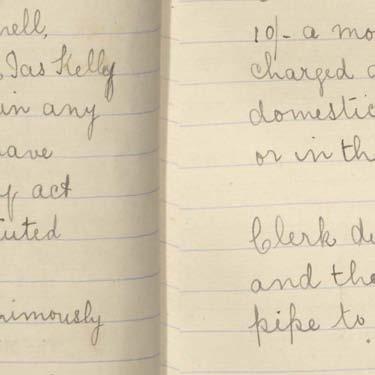 nell,
Jas Kelly
in any
have
of act
tuted
nimously
10/- a mo
charged a
domestic
or in th
Clerk d
and the
pipe to